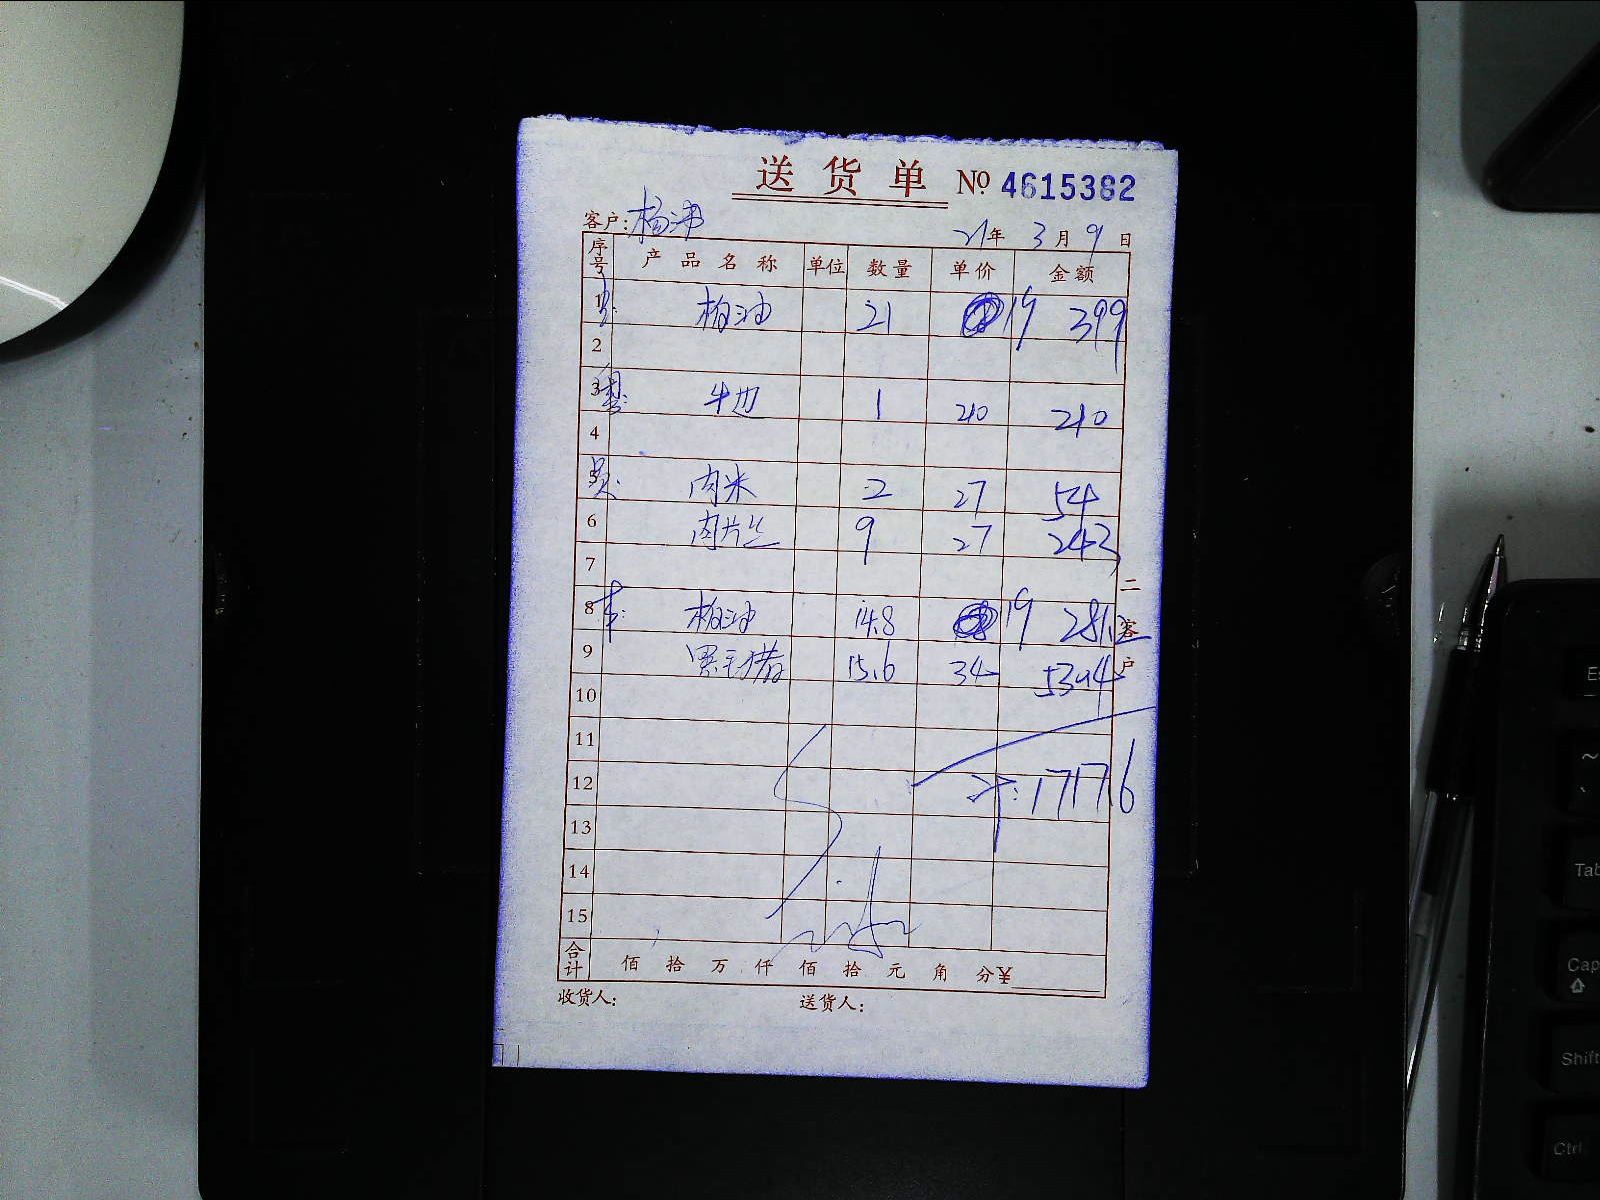 送货单 No 4615382
客户: 杨
21年 3月 9日
序号 产品名称 单位 数量 单价 金额
1 板油 21 19 399
2
3 牛边 1 210 210
4
5 肉米 2 27 54
6 肉片丝 9 27 243
7
8 板油 14.8 19 281.2
9 黑毛猪 15.6 34 530.4
10
11
12 计: 1717.6
13
14
15
合计 佰 拾 万 仟 佰 拾 元 角 分 ¥
收货人: 送货人:
二 客户
Es
~
Tab
Cap
Shift
Ctrl